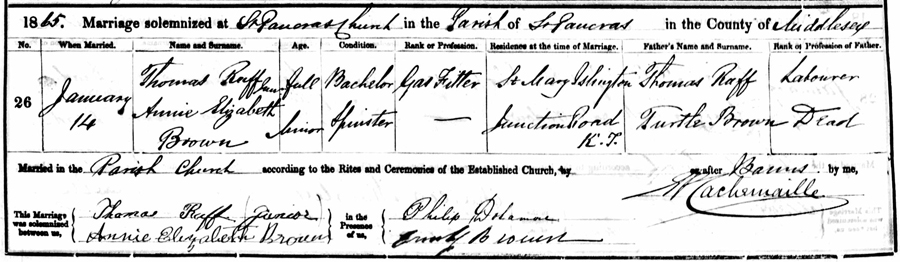 1865. Marriage solemnized at St Pancras Church in the Parish of St Pancras in the County of Middlesex
No. When Married. Name and Surname. Age. Condition. Rank or Profession. Residence at the time of Marriage. Father's Name and Surname. Rank or Profession of Father.
26 January 14 Thomas Raff Junr full Bachelor Gas Fitter St Mary Islington Thomas Raff Labourer
Annie Elizabeth Brown Minor Spinster — Junction Road K. T. Turtle Brown Dead
Married in the Parish Church according to the Rites and Ceremonies of the Established Church, by or after Banns by me,
This Marriage was solemnized between us, Thomas Raff (Junior) Annie Elizabeth Brown in the Presence of us, Philip Brown